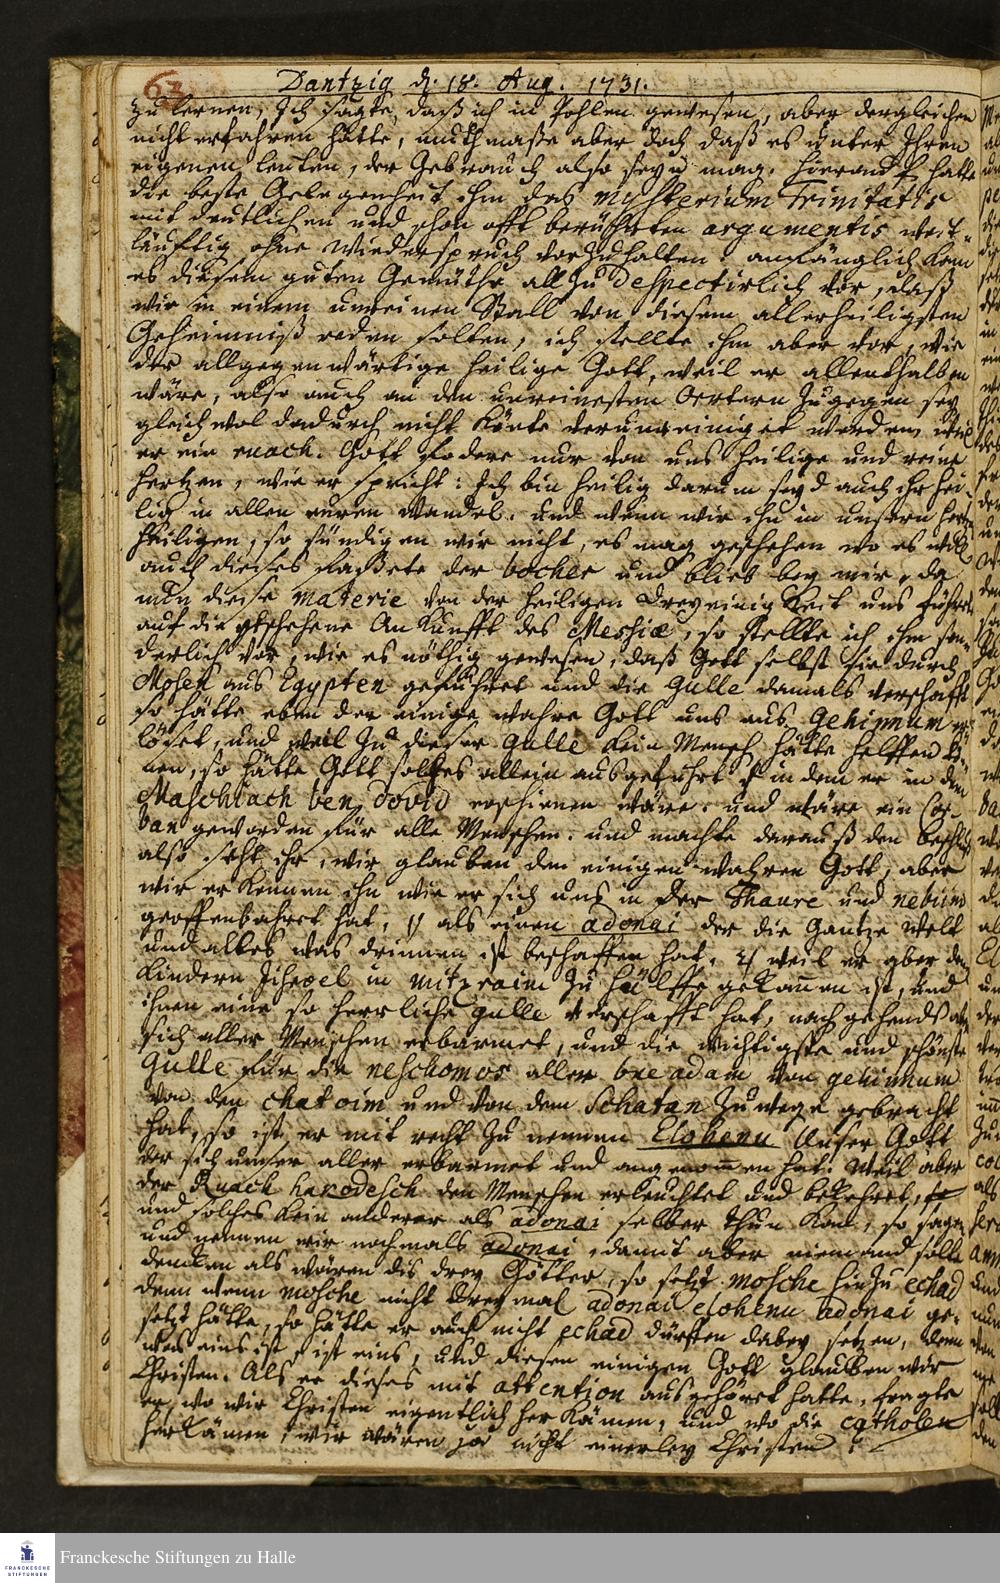 63
Dantzig d. 18. Aug. 1731.
zu lernen, Ich sagte, daß ich in Pohlen gewesen, aber dergleichen
nicht erfahren hätte, muthmaße aber doch daß es unter Ihren
eigenen leuten, der Gebrauch also seyn mag. hierauf hatte
die beste Gelegenheit ihm das mysterium Trinitatis
mit deutlichen und schon offt berührten argumentis weit-
läufftig ohne Wiederspruch vorzuhalten: anfänglich kam
es diesem guten Gemüthe allzu despectirlich vor, daß
wir in einem unreinen Stall von diesem allerheiligsten
Geheimniß reden solten, ich stellte ihm aber vor, wie
der allgegenwärtige heilige Gott, weil er allenthalben
wäre, also auch an den unreinesten Oertern zugegen sey
gleichwol dadurch nicht könte verunreiniget werden, weil
er ein ruach. Gott fodere nur von uns heilige und reine
Hertzen, wie er spricht: Ich bin heilig darum seyd auch ihr hei-
lig in allen euren Wandel. und wenn wir ihn in unsern Hertzen
heiligen, so sündigen wir nicht, es mag geschehen wo es will
auch dieses faßete der bocher und blieb bey mir, da
nun diese materie von der heiligen Dreyeinigkeit uns führete
auf die geschehene Ankunfft des Messiae, so stellte ich ihm son-
derlich vor, wie es nöthig gewesen, daß Gott selbst sie durch
Mosen aus Egypten geführet und die gulle damals verschafft
so hätte eben der einige wahre Gott uns aus gehinnum er-
löset, und weil zu dieser gulle kein Mensch hätte helffen kö-
nen, so hätte Gott solches allein ausgeführt indem er in dem
Maschiach ben dovid erschienen wäre. und wäre ein Cor-
ban geworden für alle Menschen. und machte darauß den beschluß
also seht ihr, wir glauben den einigen wahren Gott, aber
wir erkennen ihn wie er sich uns in der Thaure und nebiim
geoffenbahret hat, 1) als einen adonai der die Gantze Welt
und alles was drinnen ist beschaffen hat. 2) weil er aber den
Kindern Jisroel in mitzraim zu hülffe gekommen ist, und
ihnen eine so herrliche gulle verschafft hat, nachgehends aber
sich aller Menschen erbarmet, und die wichtigste und schönste
Gulle für die neschomos aller bne adam von gehinnum
von den chatoim und von dem Schatan zuwege gebracht
hat, so ist er mit recht zu nennen Elohenu Unser Gott
der sich unser aller erbarmet und angenommen hat. Weil aber
der Ruach hakodesch den Menschen erleuchtet und bekehret,
und solches kein anderer als adonai selber thun kan, so sagen
und nennen wir nochmals adonai, damit aber niemand solle
dencken als wären dis drey Götter, so setzt mosche hinzu echad
denn wenn mosche nicht dreymal adonai elohenu adonai ge-
setzt hätte, so hätte er auch nicht echad dürffen dabey setzen, denn
was eins ist, ist eins, und diesen einigen Gott glauben wir
Christen. Als er dieses mit attention ausgehöret hatte, fragte
er, wo wir Christen eigentlich her kämen, und wo die catholen
herkämen, wir wären ja nicht einerley Christen?
FRANCKESCHE
STIFTUNGEN
Franckesche Stiftungen zu Halle